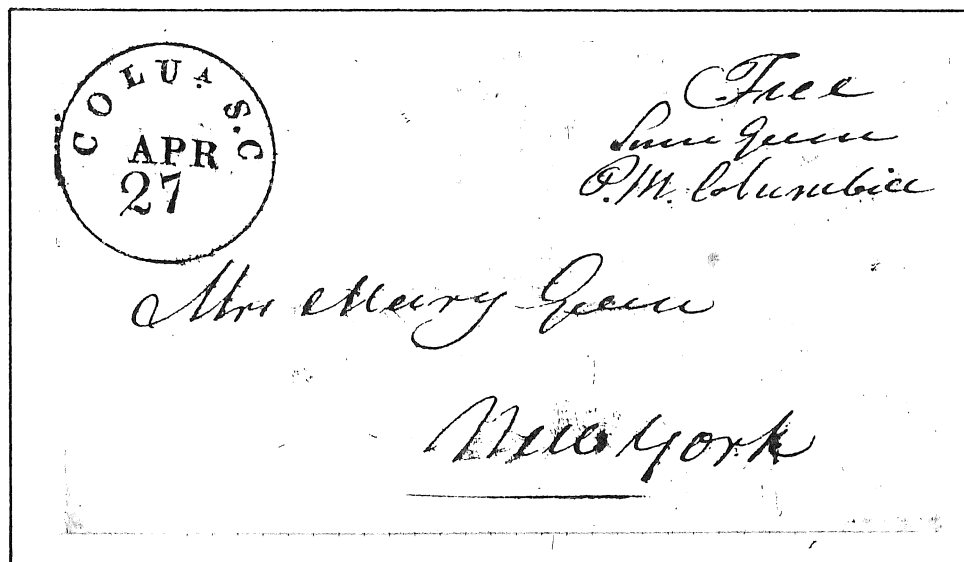 COLUᴬ S.C
APR
27
Free
Green
P.M. Columbia
Mrs Mary Green
New York